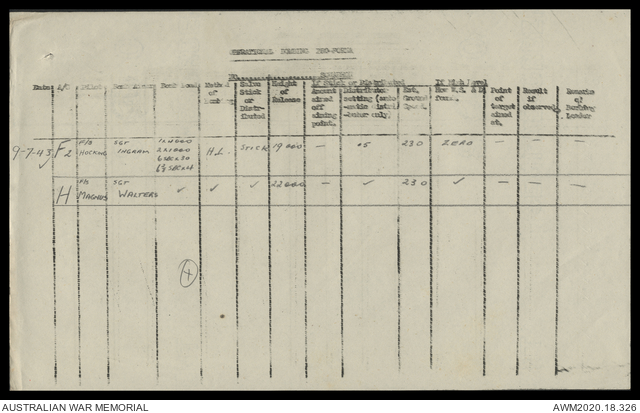 OPERATIONAL BOMBING PRO-FORMA
NO. SQUADRON
Date A/C Pilot Bomb Aimer Bomb Load Method of Bombing Salvo Stick or Distributed Height of Release If Stick or Distributed If High Level
Amount aimed off aiming point. Distributor setting (automatic distributor only. Est. Ground Speed. How W.S. & D found. Point of target aimed at. Result if observed Remarks of Bombing Leader
9-7-43 F2 F/S HOCKING SGT INGRAM 1x4000 2x1000 H.L. STICK 19000 — .5 230 ZERO — — —
H F/S MAGNUS SGT WALTERS ✓ ✓ ✓ 22000 — ✓ 230 ✓ — — —
AUSTRALIAN WAR MEMORIAL AWM2020.18.326